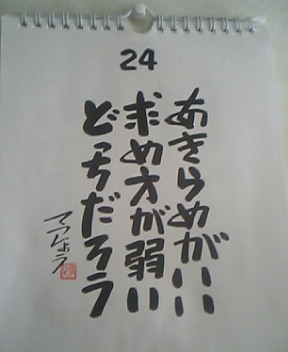 24
あきらめがいい
求め方が弱い
どっちだろう